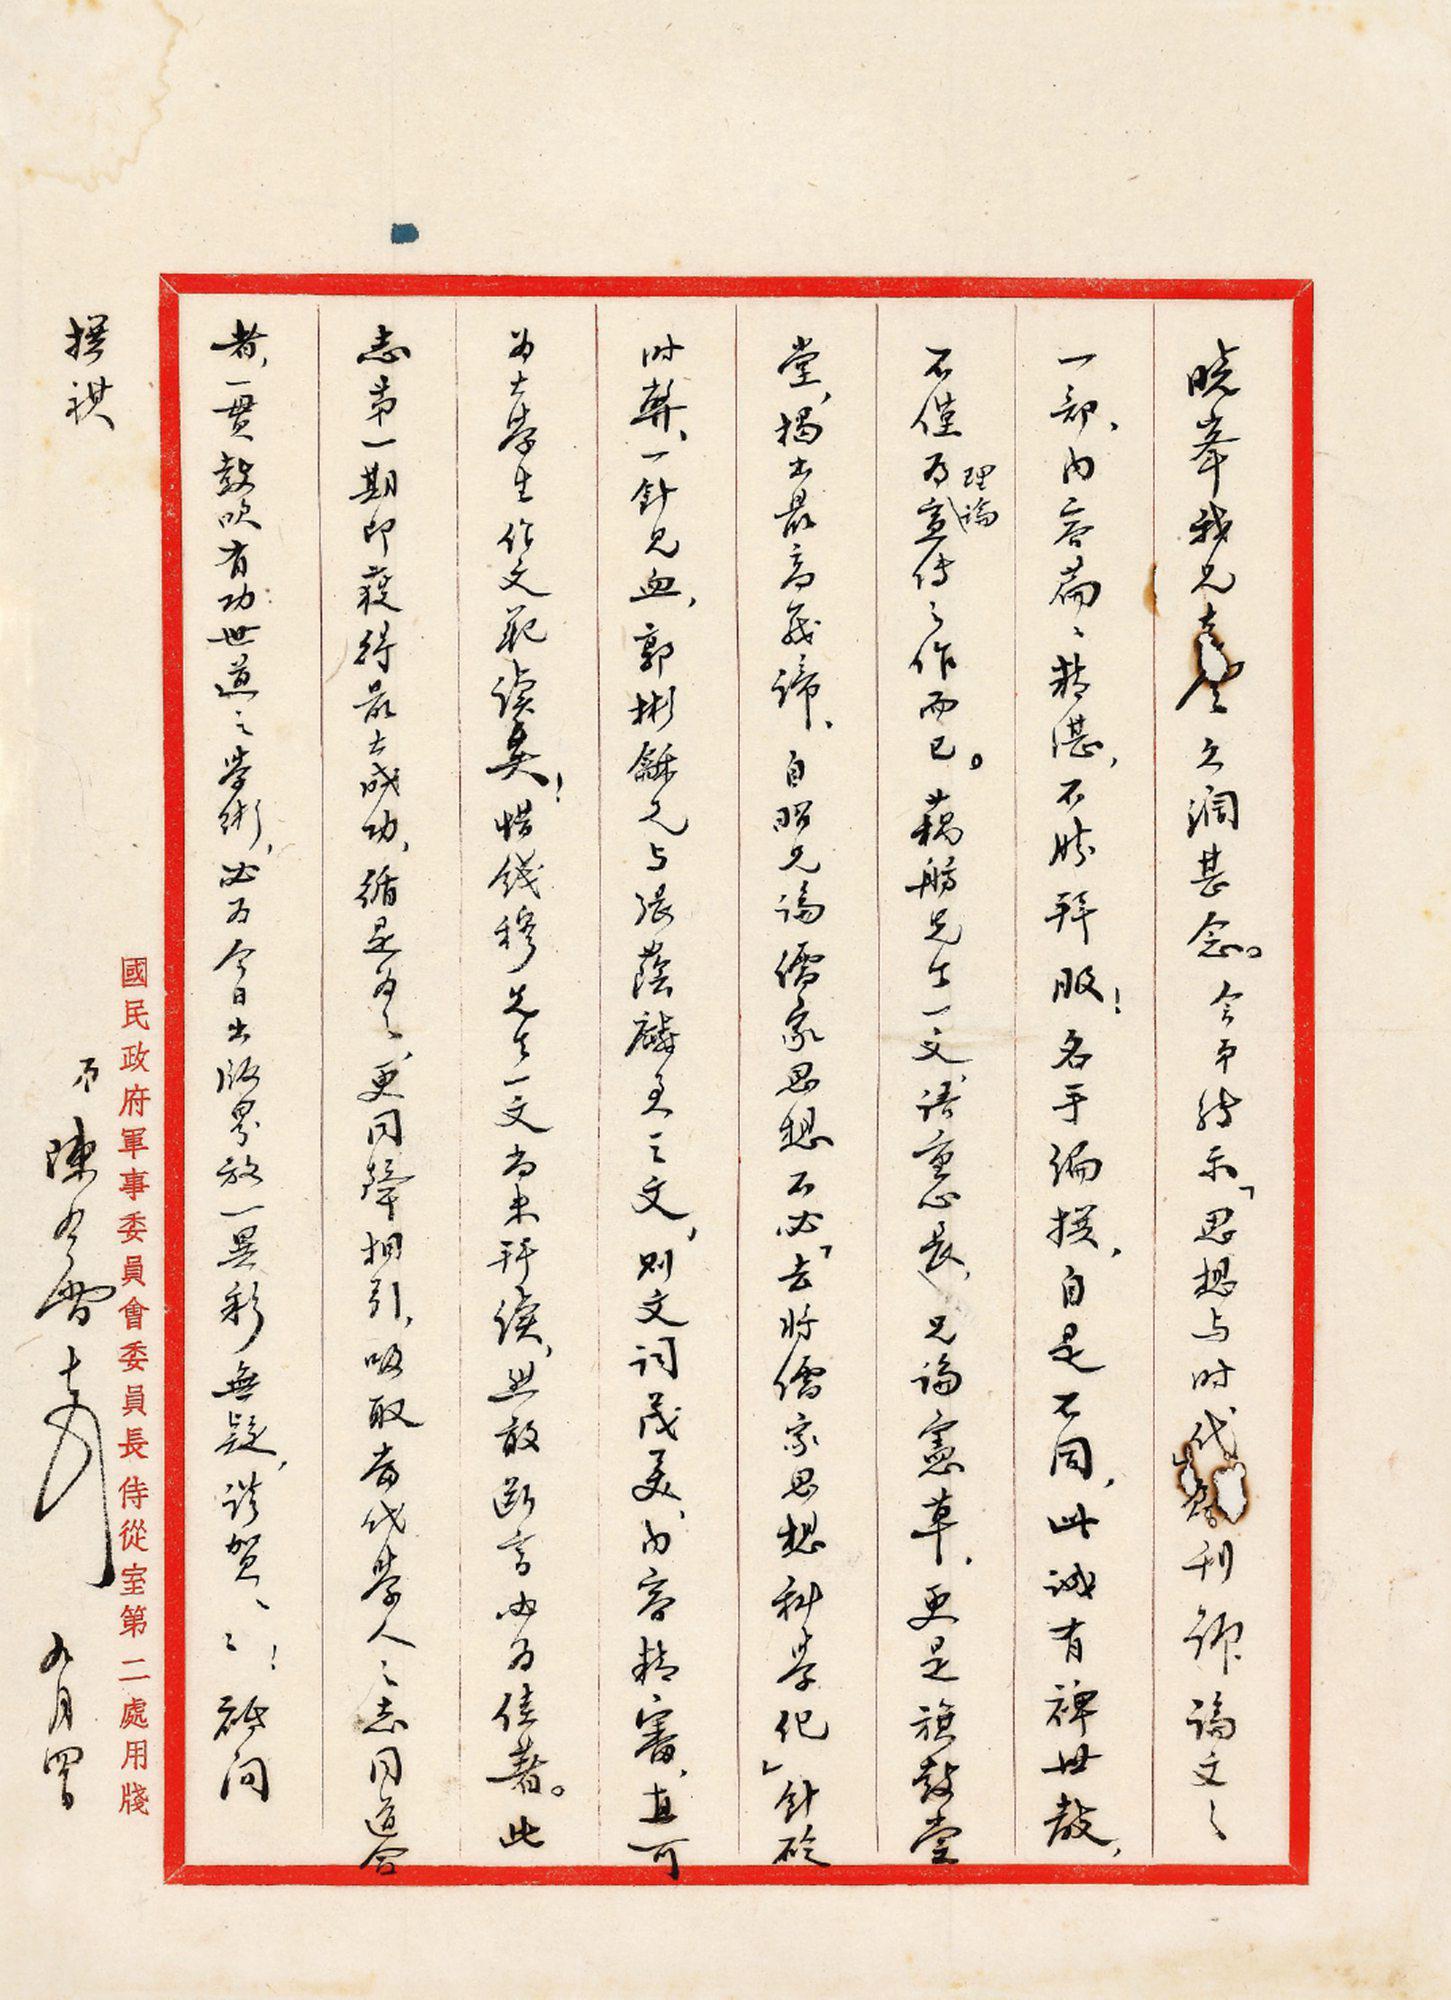 曉峯我兄大鑒久濶甚念。今承轉示「思想与时代」启刊號論文之
一部、内容篇〻精湛，不勝拜服！名手编撰，自是不同，此誠有裨世教，
不僅为理論宣传之作而已。藕舫先生一文、语重心長，兄論憲草，更是旗鼓堂
堂，揭出最高義諦，自昭兄論儒家思想不必「去將儒家思想科學化」針砭
时弊、一針见血，郭彬龢兄与張蔭麟兄之文，则文词茂美，内容精審，直可
为大學生作文範读矣！惜錢穆先生一文尚未拜读，然敢断言必为佳著。此
志第一期即获得最大成功，循是为之，更同聲相引，吸取當代學人之志同道合
者，一貫鼓吹有功世道之學術，必为今日出版界放一異彩無疑，谈贺〻〻！祗问
撰祺
弟陳布雷 九月四日
國民政府軍事委員會委員長侍從室第二處用牋